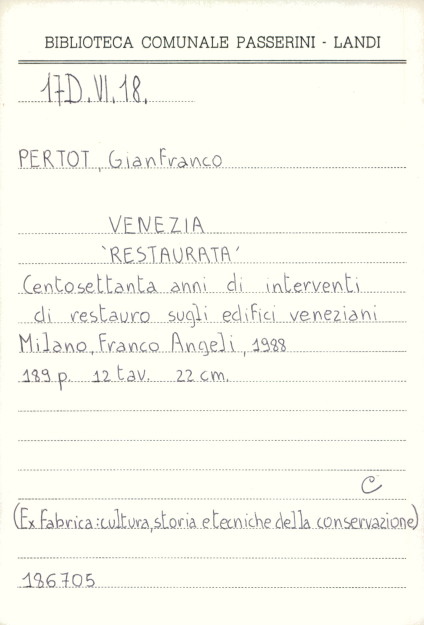 BIBLIOTECA COMUNALE PASSERINI - LANDI
17D.VI.18.
PERTOT, Gianfranco
VENEZIA
'RESTAURATA'
Centosettanta anni di interventi
di restauro sugli edifici veneziani
Milano, Franco Angeli, 1988
189 p. 12 tav. 22 cm.
C
(Ex Fabrica: cultura, storia e tecniche della conservazione)
186705